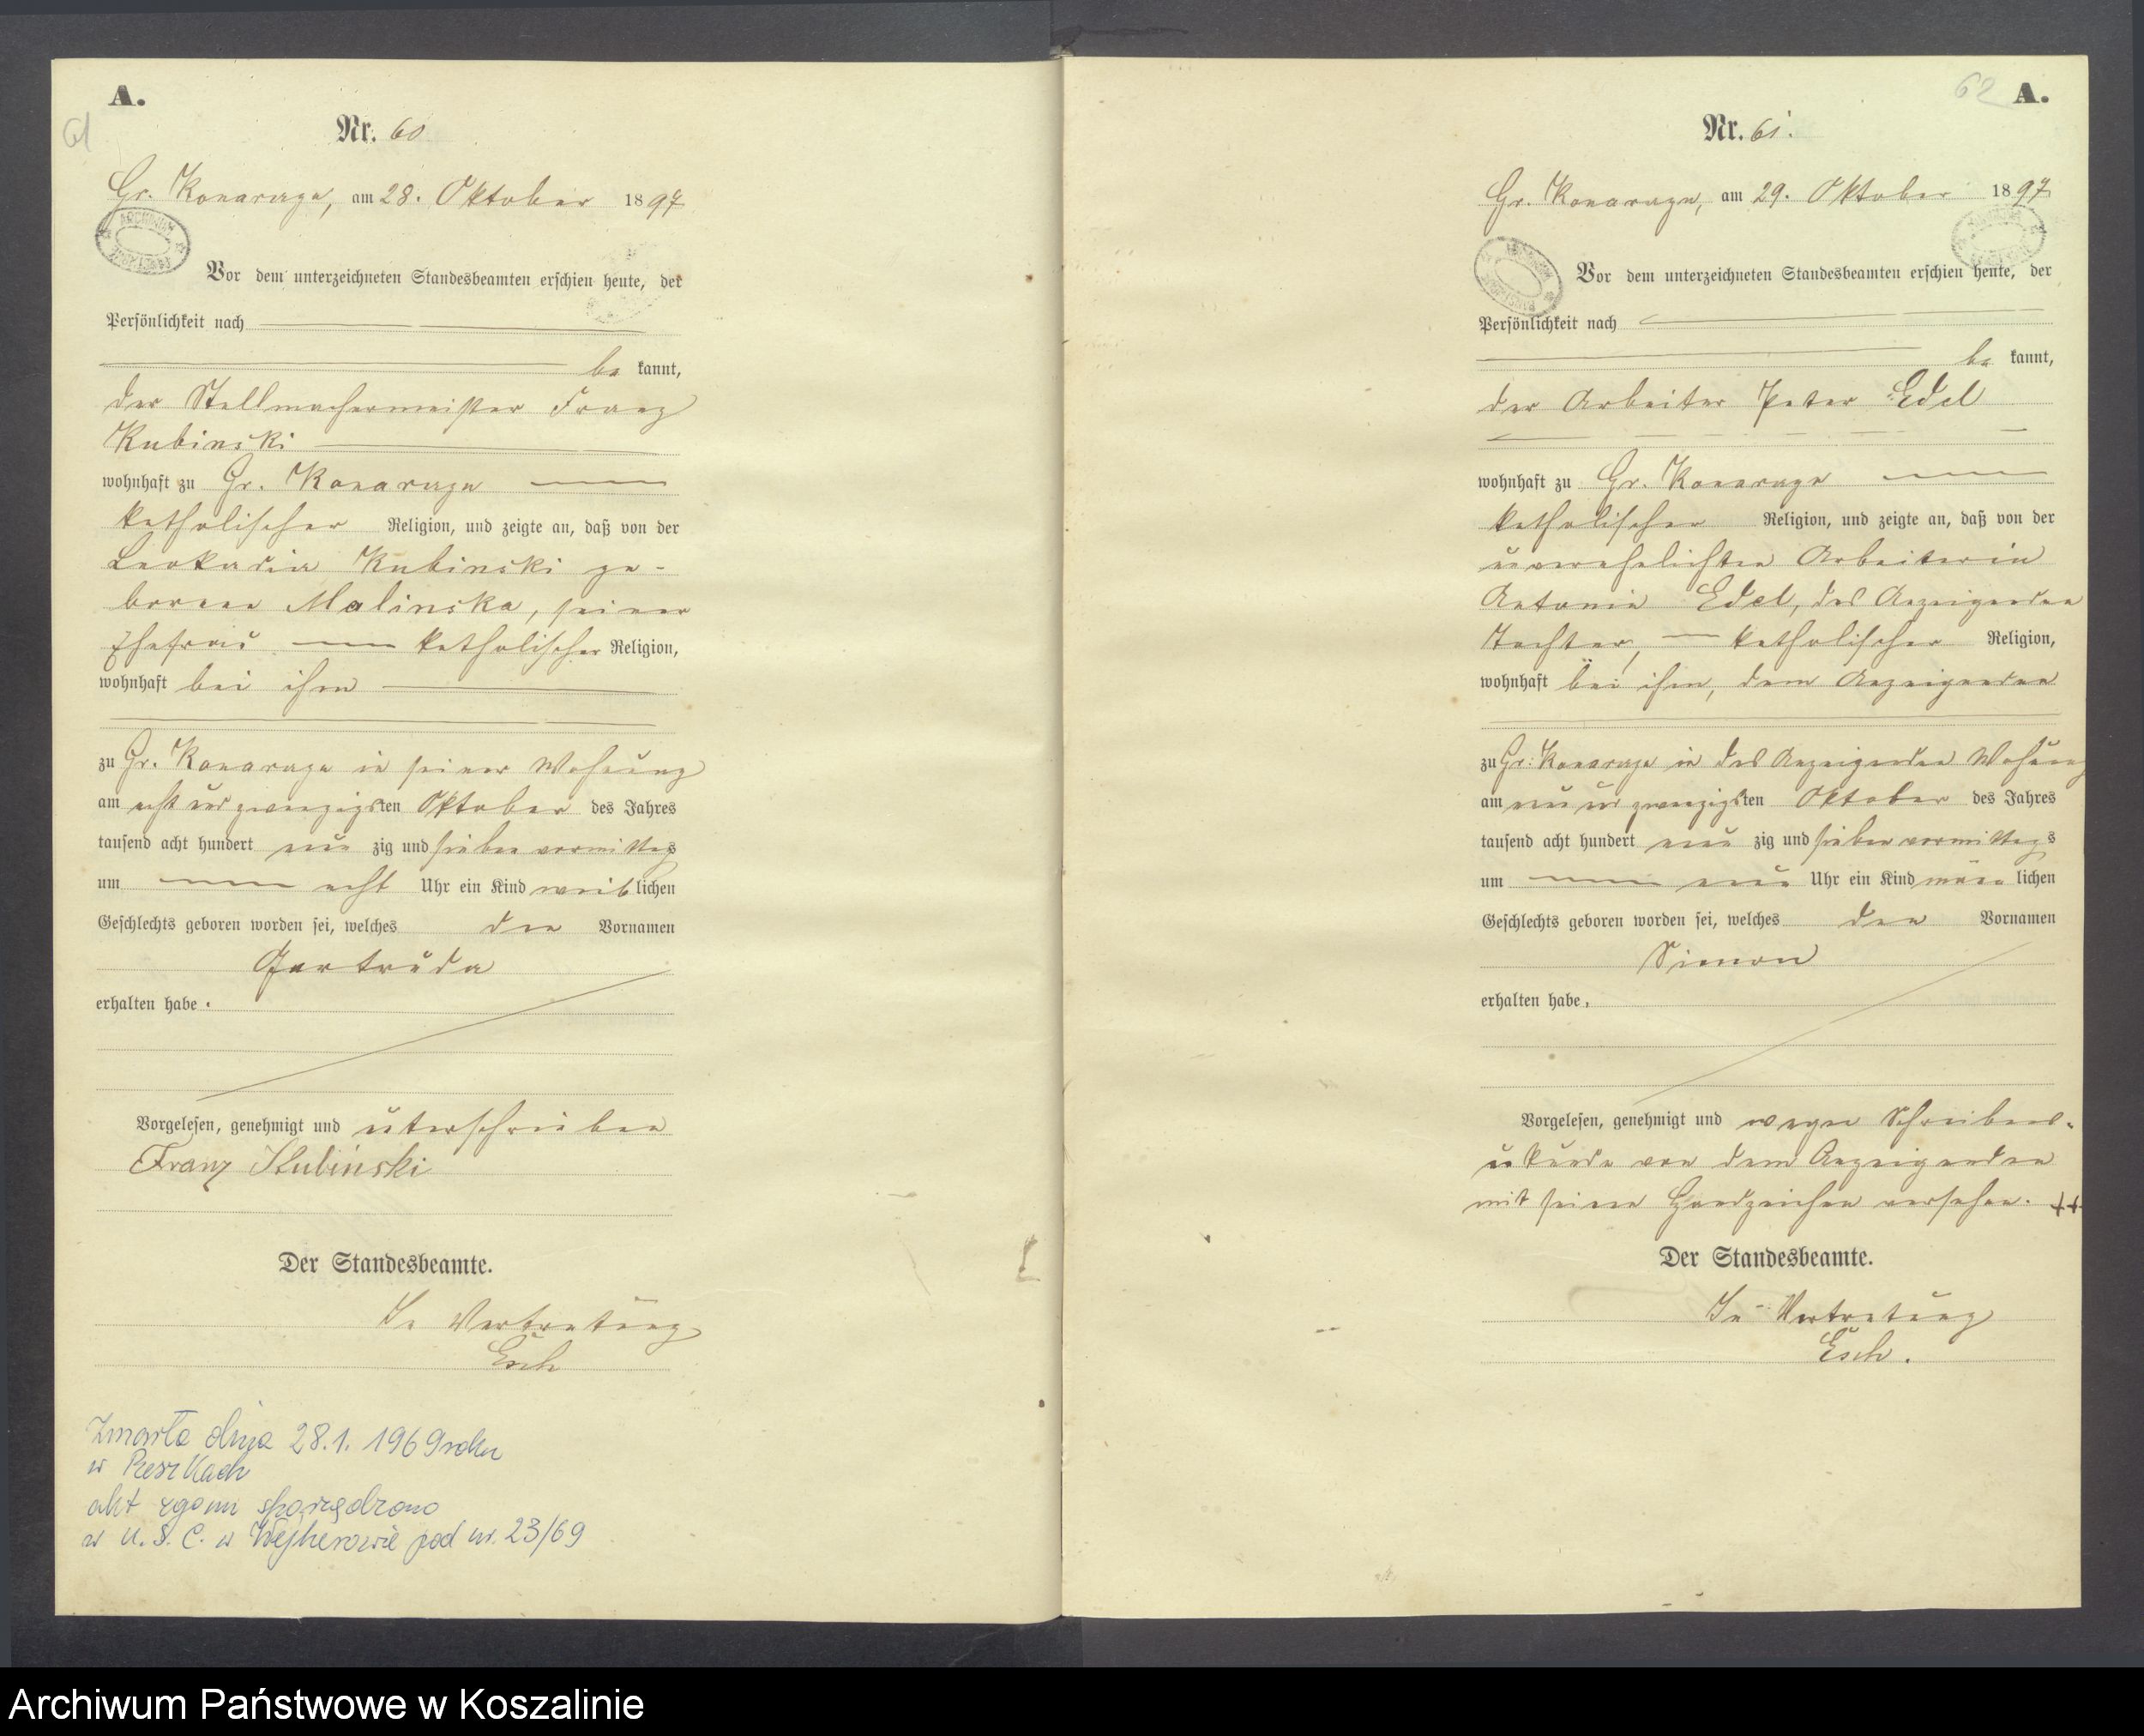 A.
61
Nr. 60
Gr. Konarzyn, am 28. Oktober 1897
Vor dem unterzeichneten Standesbeamten erschien heute, der
Persönlichkeit nach
be kannt,
der Stellmachermeister Franz
Kubinski
wohnhaft zu Gr. Konarzyn
katholischer Religion, und zeigte an, daß von der
Leokadia Kubinski ge-
borene Malinska, seiner
Ehefrau katholischer Religion,
wohnhaft bei ihm
zu Gr. Konarzyn in seiner Wohnung
am acht und zwanzigsten Oktober des Jahres
tausend acht hundert neun zig und sieben vormittags
um acht Uhr ein Kind weib lichen
Geschlechts geboren worden sei, welches den Vornamen
Gertruda
erhalten habe.
Vorgelesen, genehmigt und unterschrieben
Franz Kubinski
Der Standesbeamte.
In Vertretung
Esch
Zmarła dnia 28.1.1969 roku
w
akt zgonu sporządzono
w U.S.C. w Wejherowie pod nr. 23/69
62 A.
Nr. 61.
Gr. Konarzyn, am 29. Oktober 1897
Vor dem unterzeichneten Standesbeamten erschien heute, der
Persönlichkeit nach
be kannt,
der Arbeiter Peter Edel
wohnhaft zu Gr. Konarzyn
katholischer Religion, und zeigte an, daß von der
unverehelichten Arbeiterin
Antonie Edel, des Anzeigenden
Tochter, katholischer Religion,
wohnhaft bei ihm, dem Anzeigenden
zu Gr. Konarzyn in des Anzeigenden Wohnung
am neun und zwanzigsten Oktober des Jahres
tausend acht hundert neun zig und sieben vormittags
um neun Uhr ein Kind männ lichen
Geschlechts geboren worden sei, welches den Vornamen
Simon
erhalten habe.
Vorgelesen, genehmigt und wegen Schreibens-
unkunde von dem Anzeigenden
mit seinen Handzeichen versehen. +++
Der Standesbeamte.
In Vertretung
Esch.
Archiwum Państwowe w Koszalinie